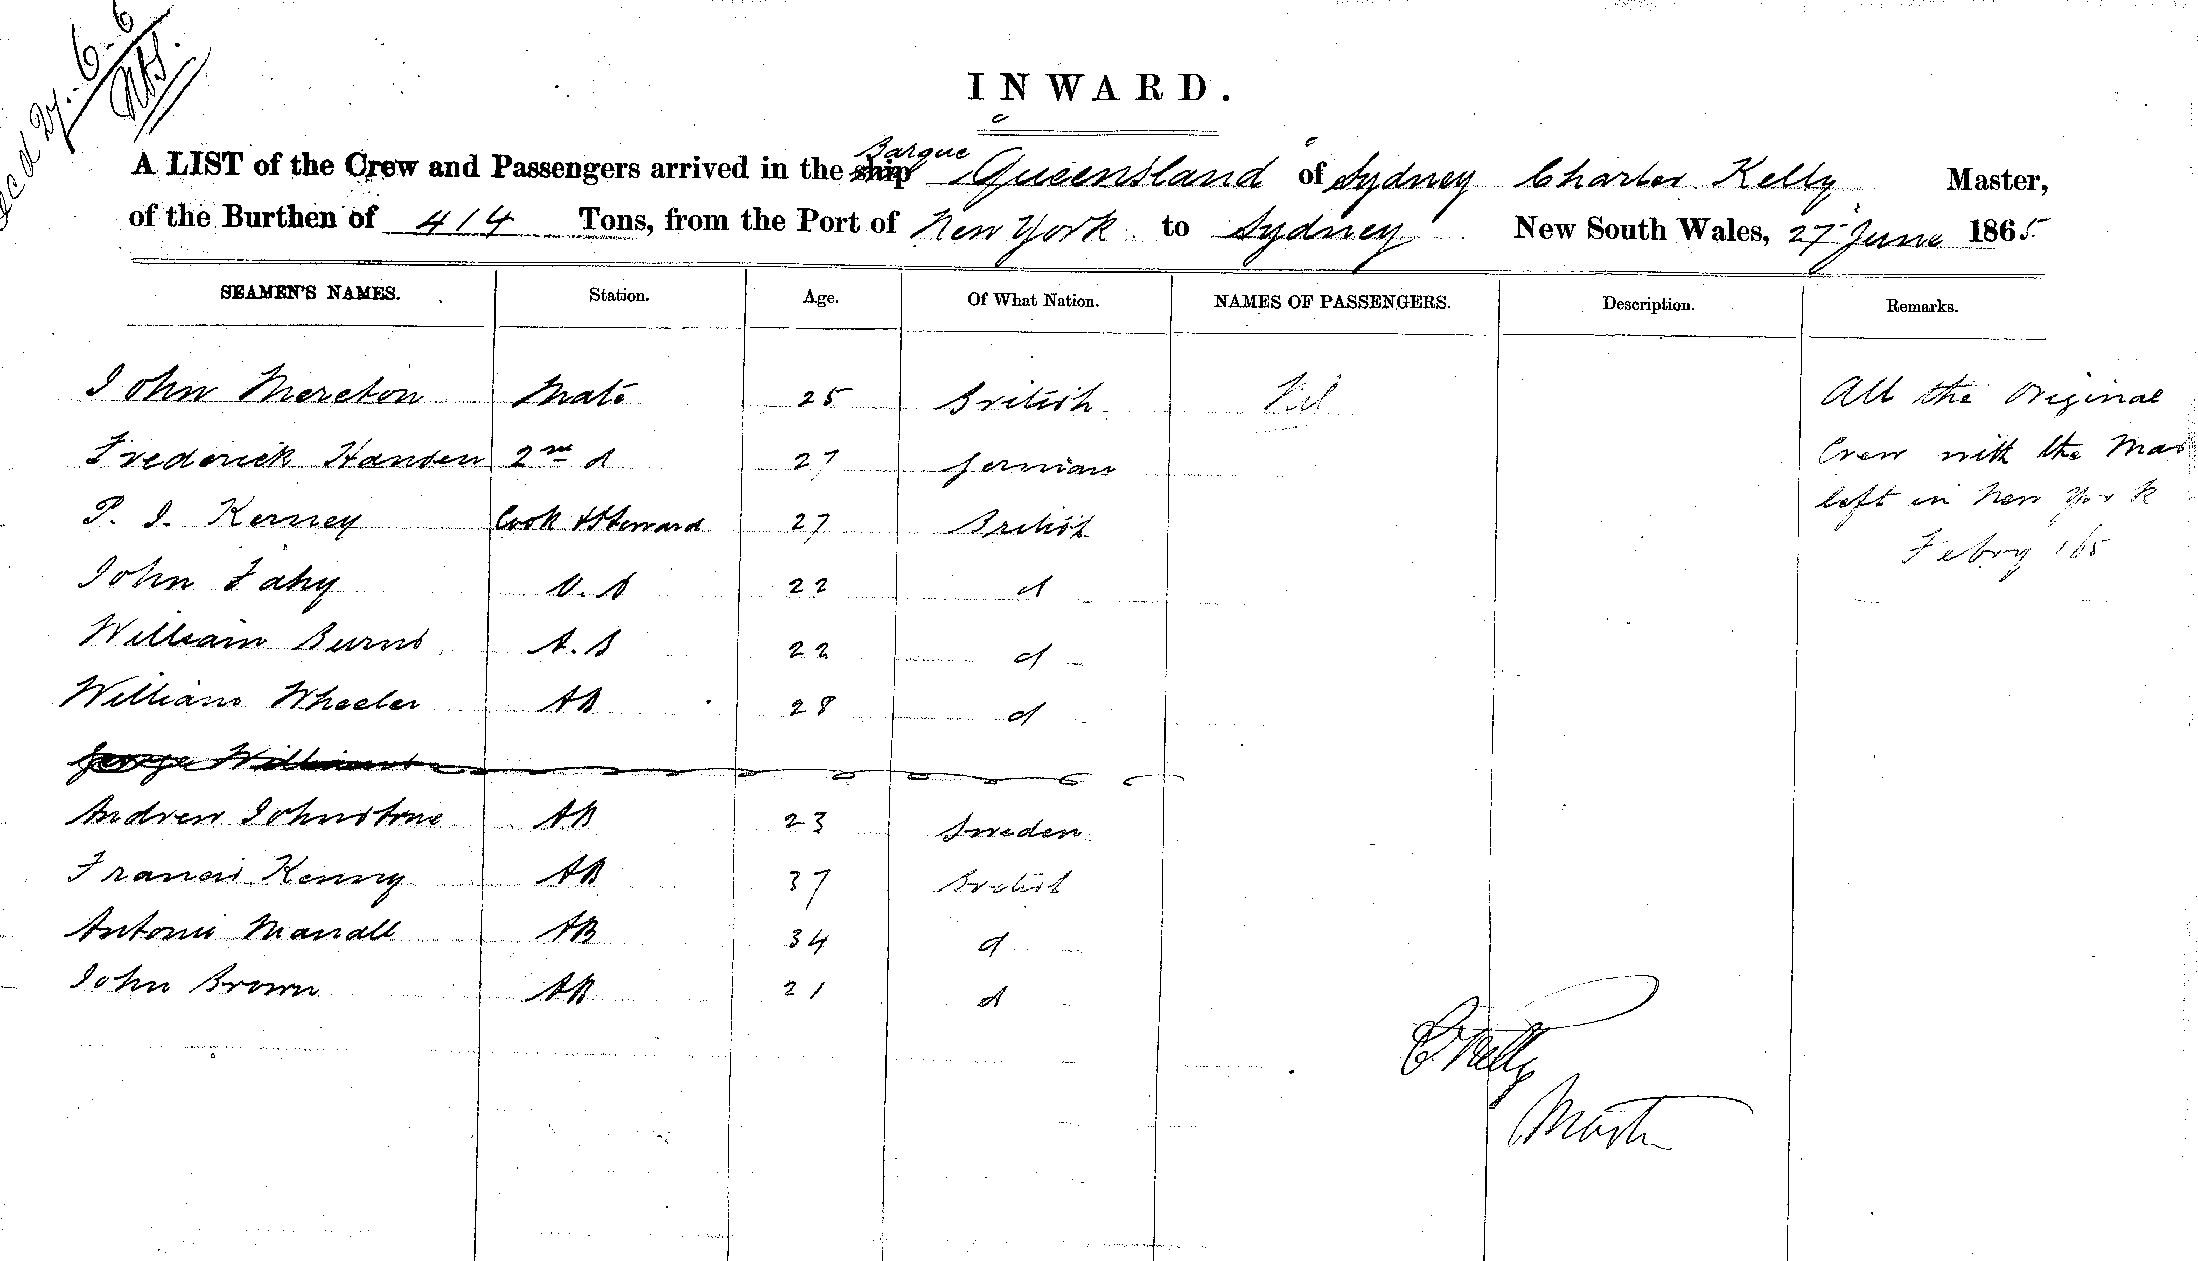 Recd 27.6.6
INWARD.
A LIST of the Crew and Passengers arrived in the ship Barque Queensland of Sydney Charles Kelly Master,
of the Burthen of 414 Tons, from the Port of New York to Sydney New South Wales, 27 June 1865
SEAMEN'S NAMES. Station. Age. Of What Nation. NAMES OF PASSENGERS. Description. Remarks.
John Mereton Mate 25 British Nil All the Original
Frederick Hansen 2nd d 27 German Crew with the Mas
P. J. Kerney Cook & Steward 27 British left in New York
Febry /65
John Fahy O.S 22 d
William Burns A.B 22 d
William Wheeler AB 28 d
George Williams
Andrew Johnstone AB 23 Sweden
Francis Kenny AB 37 British
Antonio Manall AB 34 d
John Brown AB 21 d
C Kelly
Master